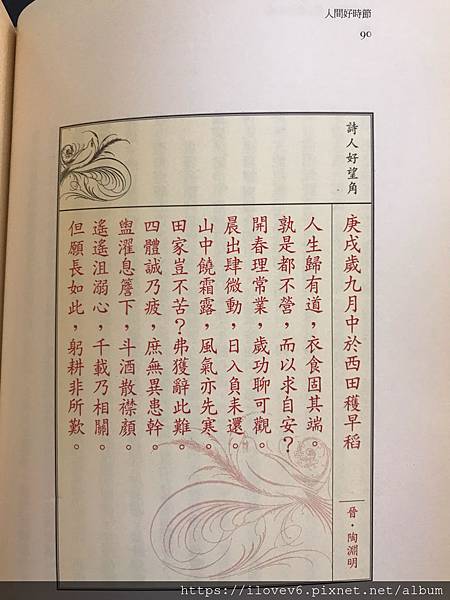 人間好時節
90
詩人好望角
庚戌歲九月中於西田穫早稻
晉·陶淵明
人生歸有道，衣食固其端。
孰是都不營，而以求自安？
開春理常業，歲功聊可觀。
晨出肆微動，日入負耒還。
山中饒霜露，風氣亦先寒。
田家豈不苦？弗獲辭此難。
四體誠乃疲，庶無異患幹。
盥濯息簷下，斗酒散襟顏。
遙遙沮溺心，千載乃相關。
但願長如此，躬耕非所歎。
https://ilovev6.pixnet.net/album